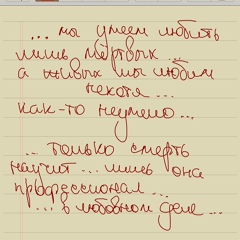 ... мы умеем любить
лишь мёртвых ...
а живых мы любим
нехотя ...
как-то неумело ...
... только смерть
научит ... лишь она
профессионал ...
... в любовном деле ...